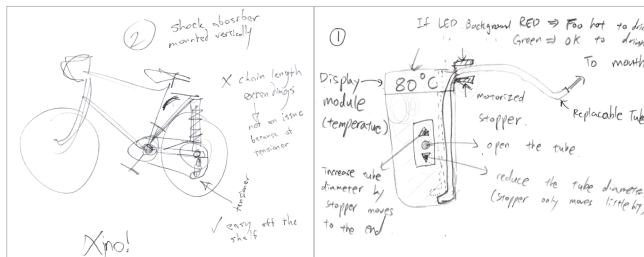 2
shock abosrber
mounted vertically
X chain length
extendings
not an issue
because of
tensioner
tensioner
✓ easy off the
shelf
Xino!
1
If LED Background RED ⇒ Foo hot to dri
Green ⇒ OK to drink
To mouth
Display
module
(temperature)
80°C
motorized
stopper.
Replacable Tube
open the tube
Increase tube
diameter by
stopper moves
to the end
reduce the tube diameter
(stopper only moves little by